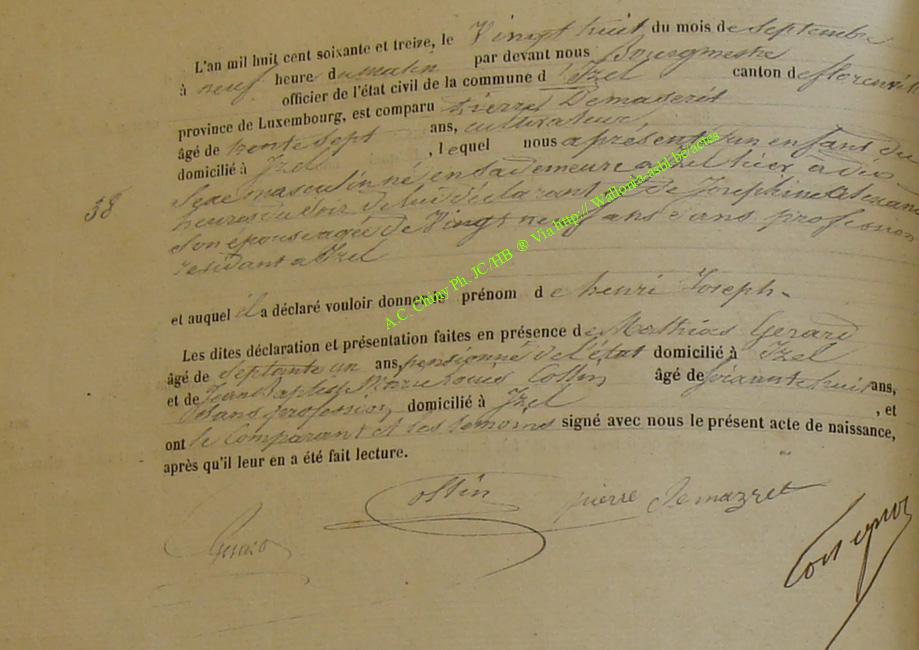 L'an mil huit cent soixante et treize, le Vingt huit du mois de Septembre
à neuf heure du matin par devant nous Bourgmestre
officier de l'état civil de la commune d'Izel canton de florenville
province de Luxembourg, est comparu Pierre
âgé de trente sept ans, cultivateur,
domicilié à Izel, lequel nous a présenté un enfant du
58
Sexe masculin né en sa demeure à Izel hier à dix
heures du Soir de lui déclarant et de Joséphine
Son épouse agée de Vingt neuf ans sans profession
residant a Izel
et auquel il a déclaré vouloir donner le prénom de henri Joseph-
Les dites déclaration et présentation faites en présence de Mathias Gerard
âgé de Septante un ans, pensionné de l'état domicilié à Izel
et de Jean Baptiste Collin âgé de Soixante huit ans,
Sans profession, domicilié à Izel, et
ont le Comparant et les temoins signé avec nous le présent acte de naissance,
après qu'il leur en a été fait lecture.
Collin pierre Demazret
Gerard
A.C. Chiny Ph. JC/HB ® Via http:// Wallonia-asbl.be/actes